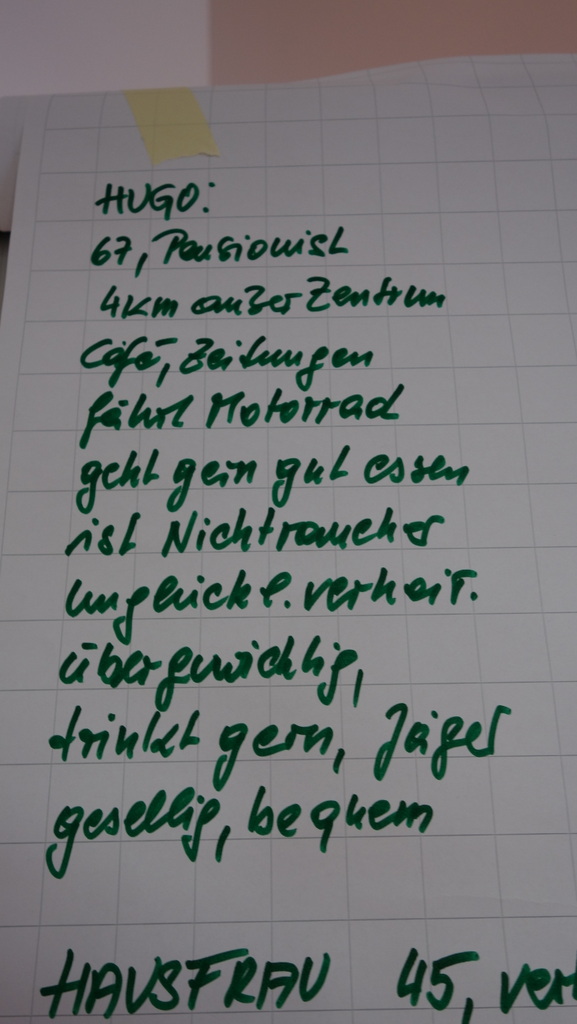 HUGO:
67, Pensionist
4km außer Zentrum
Café, Zeitungen
fährt Motorrad
geht gern gut essen
ist Nichtraucher
unglückl. verheir.
übergewichtig,
trinkt gern, Jäger
gesellig, bequem
HAUSFRAU 45, ver